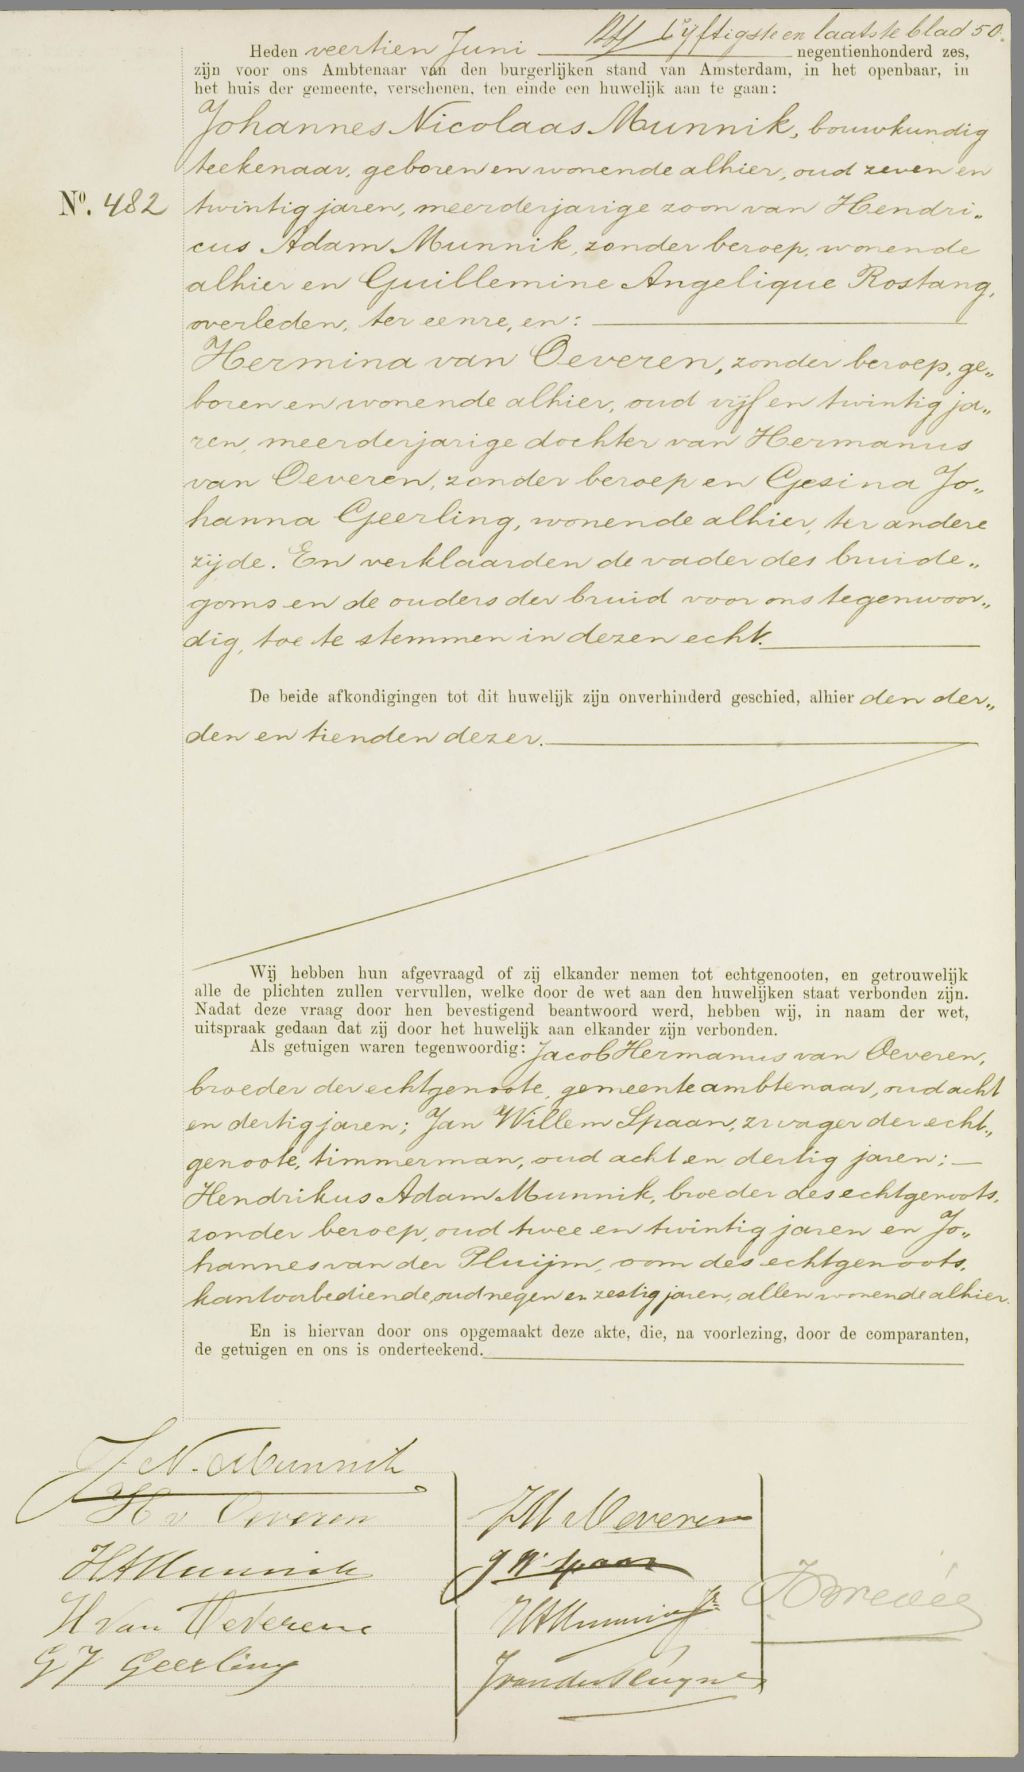 Vijftigste en laatste blad 50.
Heden veertien Juni negentienhonderd zes,
zijn voor ons Ambtenaar van den burgerlijken stand van Amsterdam, in het openbaar, in
het huis der gemeente, verschenen, ten einde een huwelijk aan te gaan:
Johannes Nicolaas Munnik, bouwkundig
teekenaar, geboren en wonende alhier, oud zeven en
No. 482
twintig jaren, meerderjarige zoon van Hendri„
cus Adam Munnik, zonder beroep, wonende
alhier en Guillemine Angelique Rostang,
overleden, ter eenre, en:
Hermina van Oeveren, zonder beroep, ge„
boren en wonende alhier, oud vijf en twintig ja„
ren, meerderjarige dochter van Hermanus
van Oeveren, zonder beroep en Gesina Jo„
hanna Geerling, wonende alhier, ter andere
zijde. En verklaarden de vader des bruide„
goms en de ouders der bruid voor ons tegenwoor„
dig, toe te stemmen in dezen echt.
De beide afkondigingen tot dit huwelijk zijn onverhinderd geschied, alhier den der„
den en tienden dezer.
Wij hebben hun afgevraagd of zij elkander nemen tot echtgenooten, en getrouwelijk
alle de plichten zullen vervullen, welke door de wet aan den huwelijken staat verbonden zijn.
Nadat deze vraag door hen bevestigend beantwoord werd, hebben wij, in naam der wet,
uitspraak gedaan dat zij door het huwelijk aan elkander zijn verbonden.
Als getuigen waren tegenwoordig: Jacob Hermanus van Oeveren,
broeder der echtgenoote, gemeenteambtenaar, oud acht
en dertig jaren; Jan Willem Spaan, zwager der echt„
genoote, timmerman, oud acht en dertig jaren;
Hendrikus Adam Munnik, broeder des echtgenoots,
zonder beroep, oud twee en twintig jaren en Jo„
hannes van der Pluijm, oom des echtgenoots,
kantoorbediende, oud negen en zestig jaren, allen wonende alhier.
En is hiervan door ons opgemaakt deze akte, die, na voorlezing, door de comparanten,
de getuigen en ons is onderteekend.
J N. Munnik
H v Oeveren
HAMunnik
H van Oeveren
G J Geerling
JH v Oeveren
J W Spaan
HAMunnik Jr
J van der Pluym